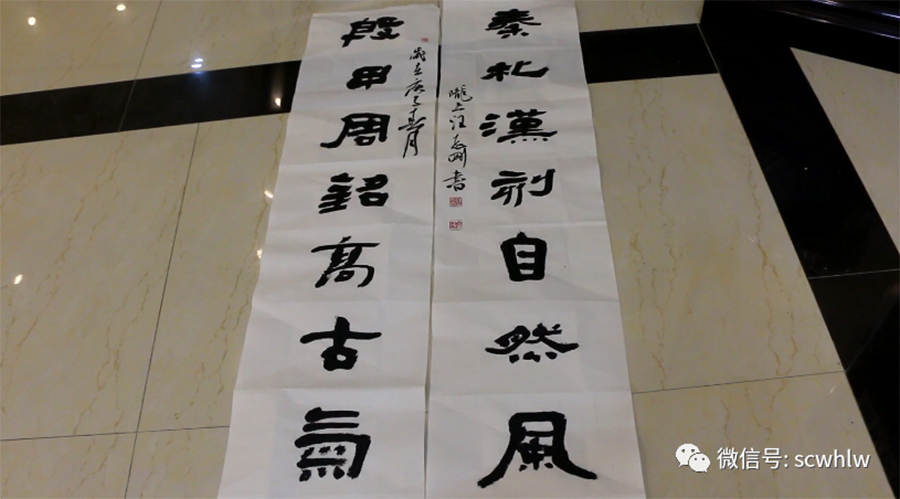 殷甲周銘高古氣
歲在庚子月
秦札漢刻自然風
隴上汪志刚書
微信号: scwhlw